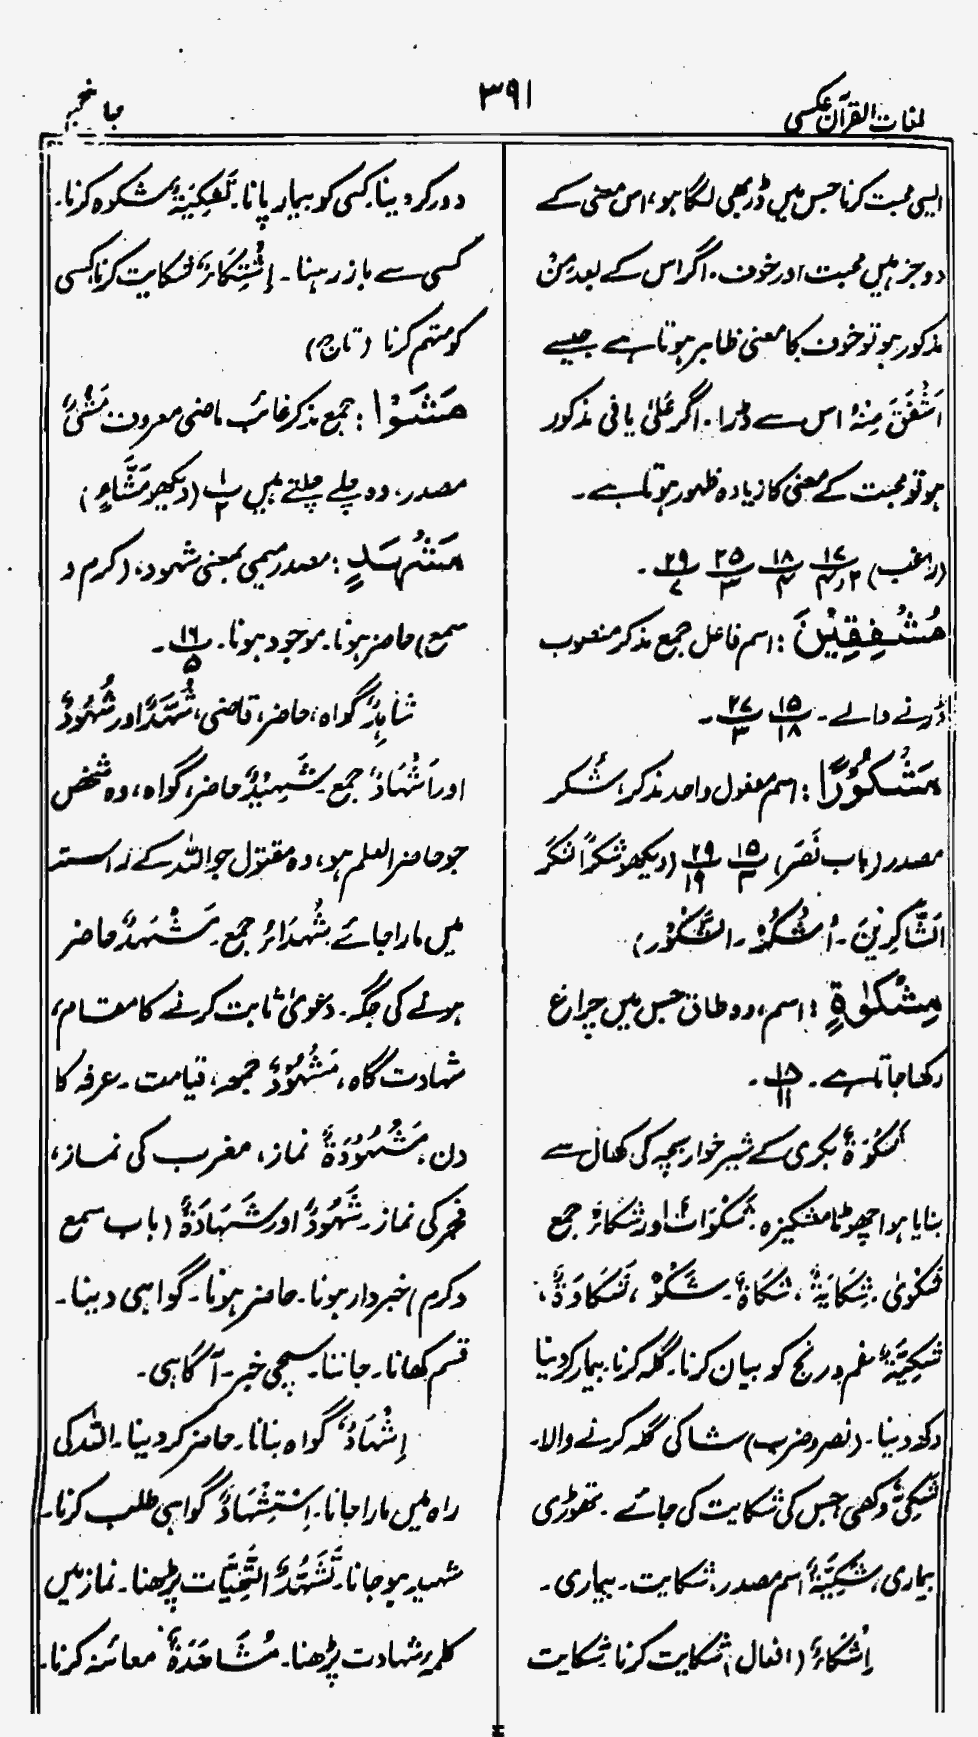 لغات القرآن عکسی
۳۹۱
ایسی محبت کرنا جس میں ڈر بھی لگا ہو، اس معنی کے
دو جز ہیں محبت اور خوف۔ اگر اس کے بعد مِنْ
مذکور ہو تو خوف کا معنی ظاہر ہوتا ہے جیسے
اَشْفَقَ مِنْهُ اس سے ڈرا۔ اگر عَلٰی یا فی مذکور
ہو تو محبت کے معنی کا زیادہ ظہور ہوتا ہے۔
(راغب) ۱۷/۲،۴ ۱۸/۴ ۲۵/۳ ۲۹/۷ ۔
مُشْفِقِيْنَ : اسم فاعل جمع مذکر منصوب
ڈرنے والے۔ ۱۵/۱۸ ۲۷/۳ ۔
مَشْكُوْرًا : اسم مفعول واحد مذکر، شُکر
مصدر (باب نَصَرَ) ۱۵/۳ ۲۹/۱۹ (دیکھو شکرًا
اَلشَّاکِرِیْنَ۔ اُشْکُرْ۔ الشَّکُوْر)
مِشْكٰوةٍ : اسم، وہ طاق جس میں چراغ
رکھا جاتا ہے۔ ۱۸/۱۱ ۔
شَکْوَةٌ بکری کے شیر خوار بچہ کی کھال سے
بنایا ہوا چھوٹا مشکیزہ شَکَوَات اور شکاءٌ جمع
شَکْوٰی۔ شِکَایَةٌ، شکَاةٌ۔ شَکْوٌ، شَکَاوَةٌ،
شَکِیَّةٌ غم و رنج کو بیان کرنا۔ گلہ کرنا۔ بیمار کر دینا
دکھ دینا۔ (نصر و ضرب) شاکی گلہ کرنے والا۔
شَکِیٌّ دکھی جس کی شکایت کی جائے۔ تھوڑی
بیماری، شَکِیَّةٌ اسم مصدر، شکایت۔ بیماری۔
اِشْکَاءٌ (افعال) شکایت کرنا شکایت
دور کر دینا۔ کسی کو بیمار پانا۔ تَشْکِیَةٌ شکوہ کرنا۔
کسی سے باز رہنا۔ اِشْتِکَاءٌ شکایت کرنا، کسی
کو متہم کرنا (تاج)
مَشَوْا : جمع مذکر غائب ماضی معروف مَشْیٌ
مصدر، وہ چلے چلتے ہیں ۱/۲ (دیکھو مَشَّاءٍ)
مَشْهَدِ : مصدر میمی بمعنی شہود، (کرم و
سمع) حاضر ہونا۔ موجود ہونا۔ ۱۶/۵ ۔
شَاہِدٌ گواہ، حاضر، قاضی، شُهَّدٌ اور شُهُوْدٌ
اور اَشْهَادٌ جمع۔ شَهِیْدٌ حاضر، گواہ، وہ شخص
جو حاضر العلم ہو، وہ مقتول جو اللہ کے راستہ
میں مارا جائے شُهَدَاءُ جمع۔ مَشْهَدٌ حاضر
ہونے کی جگہ۔ دعویٰ ثابت کرنے کا مقام،
شہادت گاہ، مَشْهُوْدٌ جمعہ، قیامت۔ عرفہ کا
دن، مَشْهُوْدَةٌ نماز، مغرب کی نماز،
فجر کی نماز۔ شُهُوْدٌ اور شَهَادَةٌ (باب سمع
و کرم) خبردار ہونا۔ حاضر ہونا۔ گواہی دینا۔
قسم کھانا۔ جاننا۔ سچی خبر۔ آگاہی۔
اِشْهَادٌ گواہ بنانا۔ حاضر کر دینا۔ اللہ کی
راہ میں مارا جانا۔ اِسْتِشْهَادٌ گواہی طلب کرنا۔
شہید ہو جانا۔ تَشَهُّدٌ التحیَّات پڑھنا۔ نماز میں
کلمۂ شہادت پڑھنا۔ مُشَاهَدَةٌ معائنہ کرنا۔